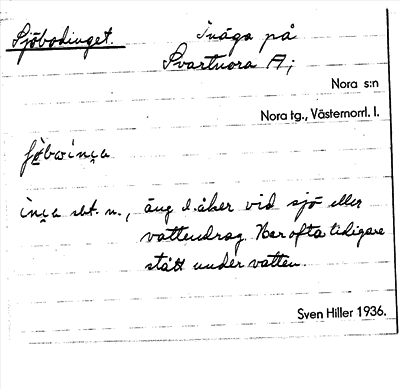 Sjöbodinget.
Inäga på
Svartnora A;
Nora s:n
Nora tg., Västernorrl. l.
sbt. n., äng l. åker vid sjö eller
vattendrag. Har ofta tidigare
stått under vatten.
Sven Hiller 1936.